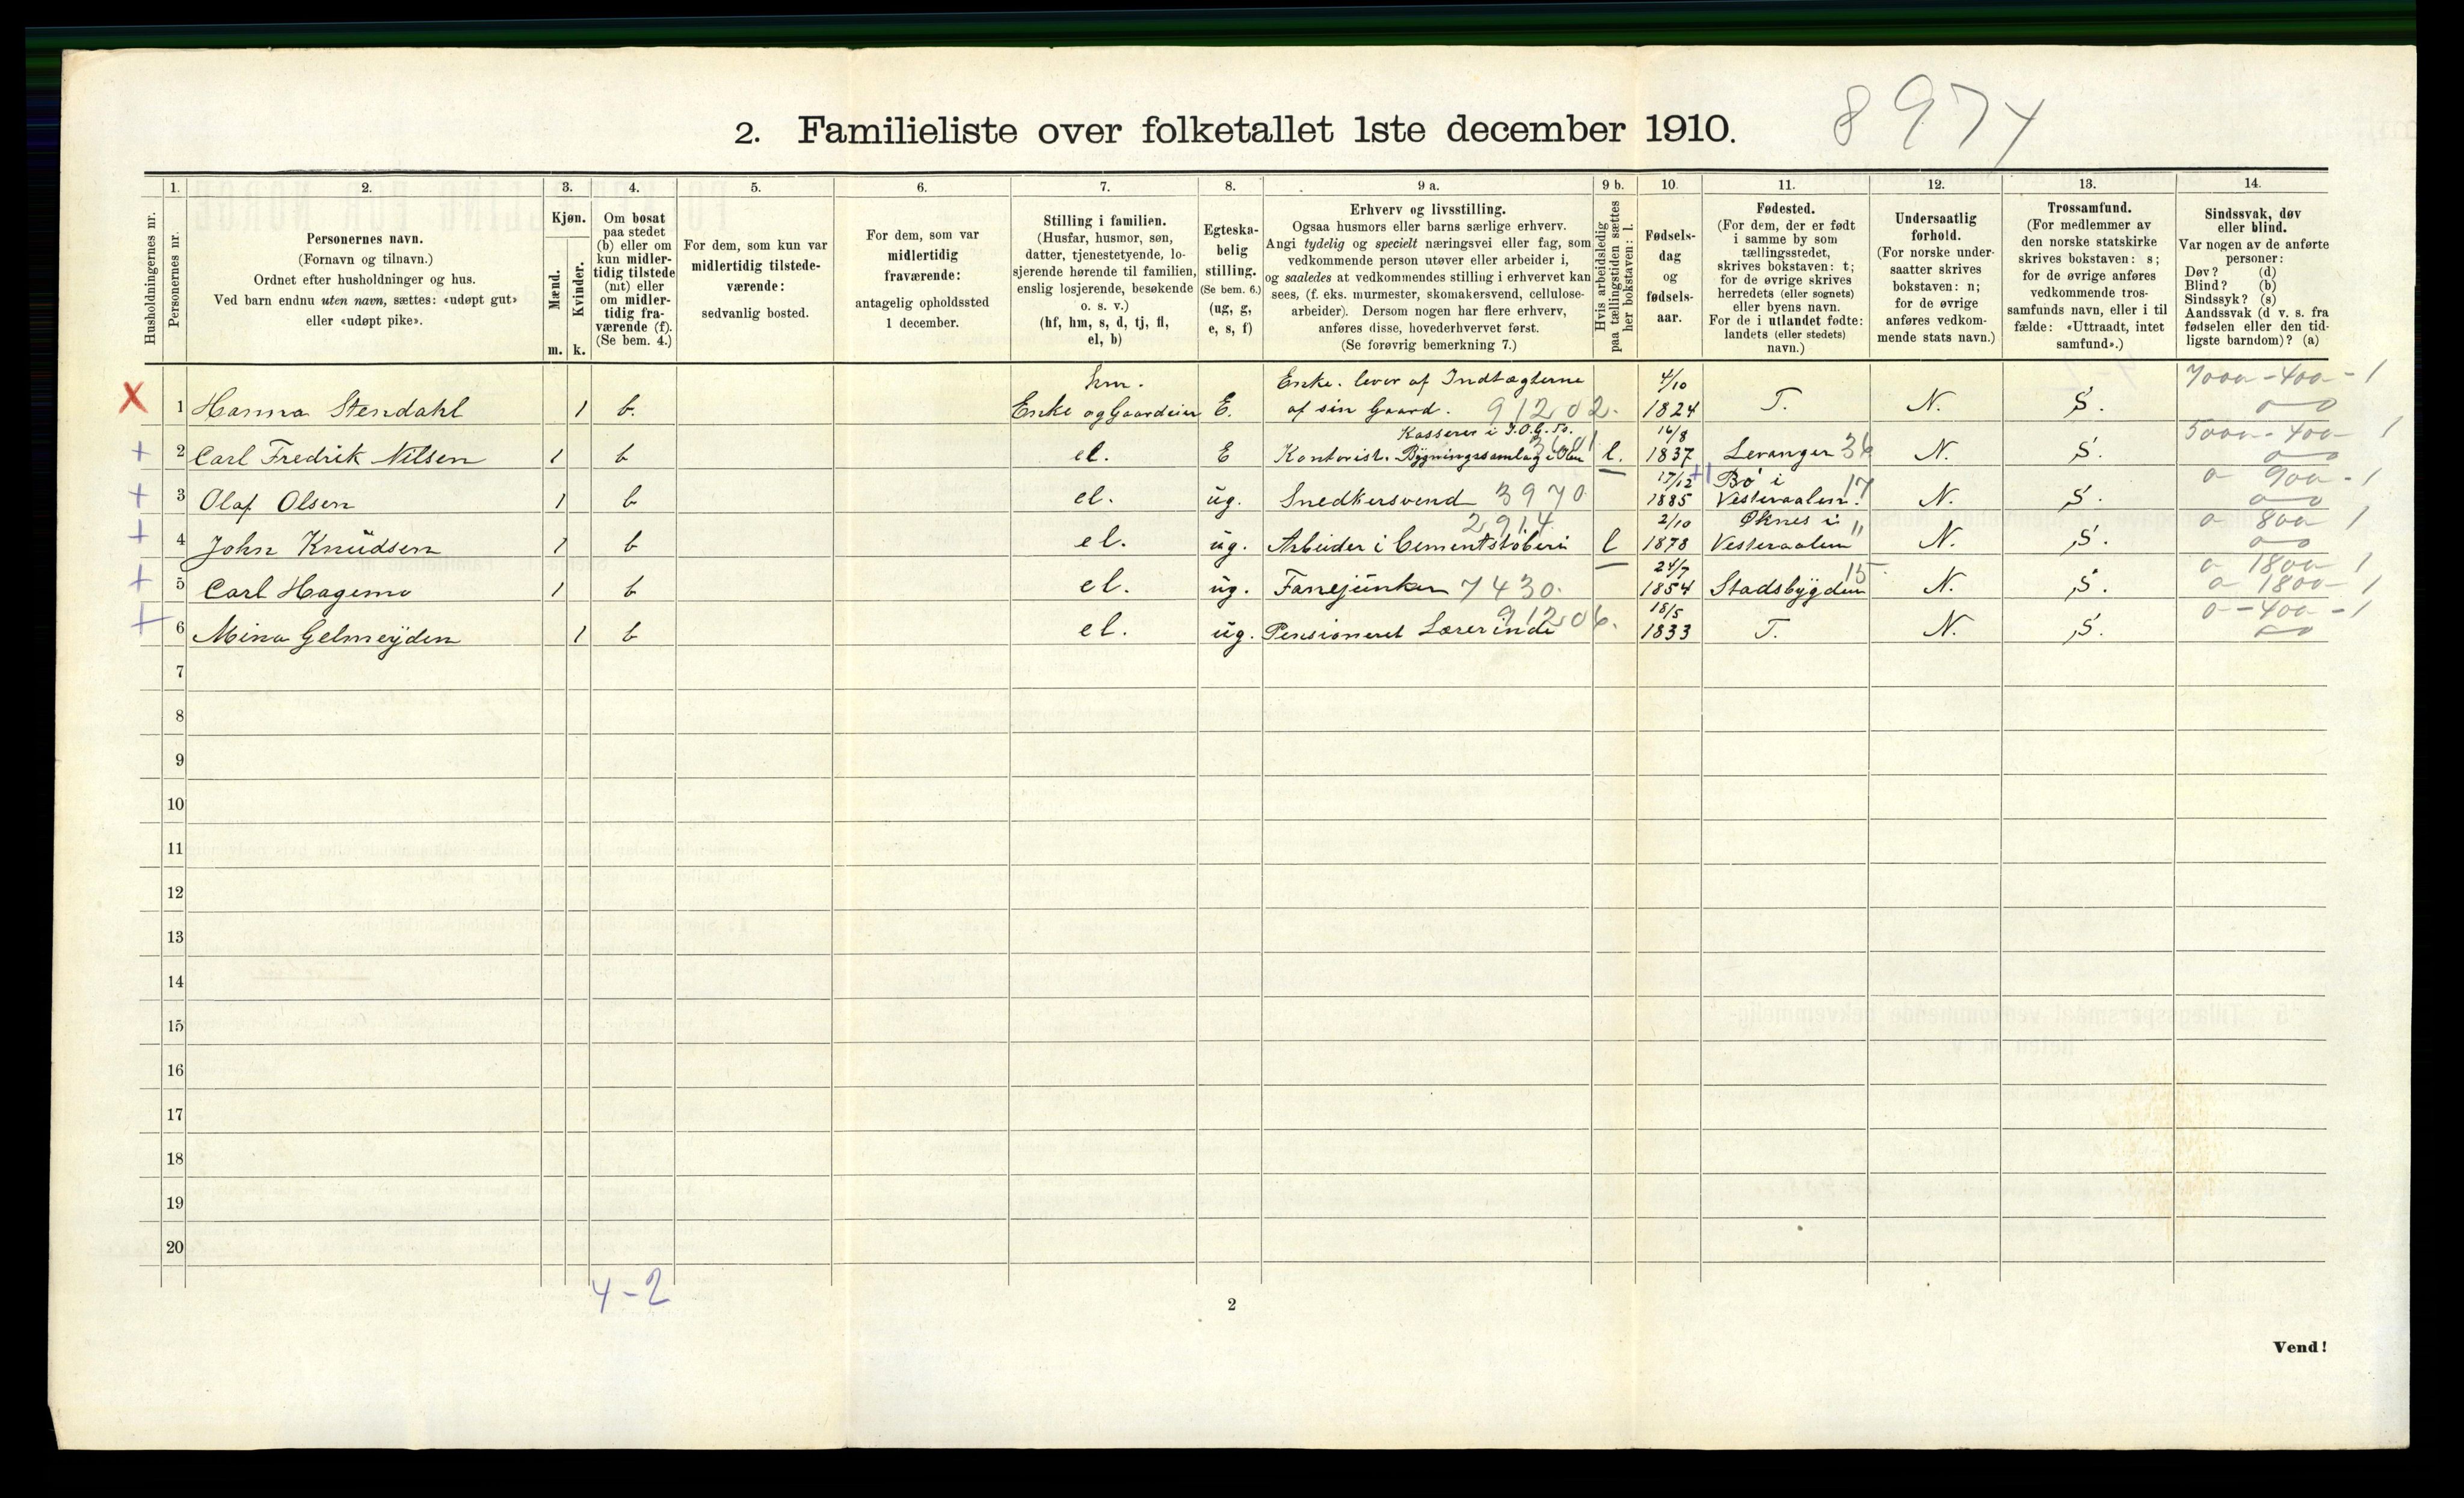 2. Familieliste over folketallet 1ste december 1910.
8974
1. 2. 3. 4. 5. 6. 7. 8. 9 a. 9 b. 10. 11. 12. 13. 14.
Husholdningernes nr.
Personernes nr.
Personernes navn.
(Fornavn og tilnavn.)
Ordnet efter husholdninger og hus.
Ved barn endnu uten navn, sættes: «udøpt gut»
eller «udøpt pike».
Kjøn.
Mænd.
Kvinder.
m. k.
Om bosat
paa stedet
(b) eller om
kun midler-
tidig tilstede
(mt) eller
om midler-
tidig fra-
værende (f).
(Se bem. 4.)
For dem, som kun var
midlertidig tilstede-
værende:
sedvanlig bosted.
For dem, som var
midlertidig
fraværende:
antagelig opholdssted
1 december.
Stilling i familien.
(Husfar, husmor, søn,
datter, tjenestetyende, lo-
sjerende hørende til familien,
enslig losjerende, besøkende
o. s. v.)
(hf, hm, s, d, tj, fl,
el, b)
Egteska-
belig
stilling.
(Se bem. 6.)
(ug, g,
e, s, f)
Erhverv og livsstilling.
Ogsaa husmors eller barns særlige erhverv.
Angi tydelig og specielt næringsvei eller fag, som
vedkommende person utøver eller arbeider i,
og saaledes at vedkommendes stilling i erhvervet kan
sees, (f. eks. murmester, skomakersvend, cellulose-
arbeider). Dersom nogen har flere erhverv,
anføres disse, hovederhvervet først.
(Se forøvrig bemerkning 7.)
Hvis arbeidsledig
paa tællingstiden sættes
her bokstaven: l.
Fødsels-
dag
og
fødsels-
aar.
Fødested.
(For dem, der er født
i samme by som
tællingsstedet,
skrives bokstaven: t;
for de øvrige skrives
herredets (eller sognets)
eller byens navn.
For de i utlandet fødte:
landets (eller stedets)
navn.)
Undersaatlig
forhold.
(For norske under-
saatter skrives
bokstaven: n;
for de øvrige
anføres vedkom-
mende stats navn.)
Trossamfund.
(For medlemmer av
den norske statskirke
skrives bokstaven: s;
for de øvrige anføres
vedkommende tros-
samfunds navn, eller i til
fælde: «Uttraadt, intet
samfund».)
Sindssvak, døv
eller blind.
Var nogen av de anførte
personer:
Døv? (d)
Blind? (b)
Sindssyk? (s)
Aandssvak (d v. s. fra
fødselen eller den tid-
ligste barndom)? (a)
hm. Enke. lever af Indtægterne 4/10 7000-400-1
X 1 Hanna Stendahl 1 b. Enke og Gaardeier E. af sin Gaard. 91202. 1824 T. N. S.
Kasserer i I.O.G.To. 16/8 5000-400-1
+ 2 Carl Fredrik Nilsen 1 b el. E Kontorist. Bygningssamlag l. 1837 Levanger 36 N. S.
17/12 Bø i 17 0 900-1
+ 3 Olaf Olsen 1 b el. ug. Snedkersvend 3970 1885 Vesteraalen N. S.
2914 2/10 Øknes i " 0 800 1
+ 4 John Knudsen 1 b el. ug. Arbeider i Cementstøberi l 1878 Vesteraalen N. S.
24/7 15 0 1800 1
+ 5 Carl Hagemo 1 b el. ug. Fanejunker 7430. 1854 Stadsbygden N. S. 0 1800 1
91206. 18/5 0-400-1
+ 6 Mina Gelmeyden 1 b el. ug. Pensioneret Lærerinde 1833 T. N. S.
7
8
9
10
11
12
13
14
15
16
17
18
19
20
4-2
2
Vend!